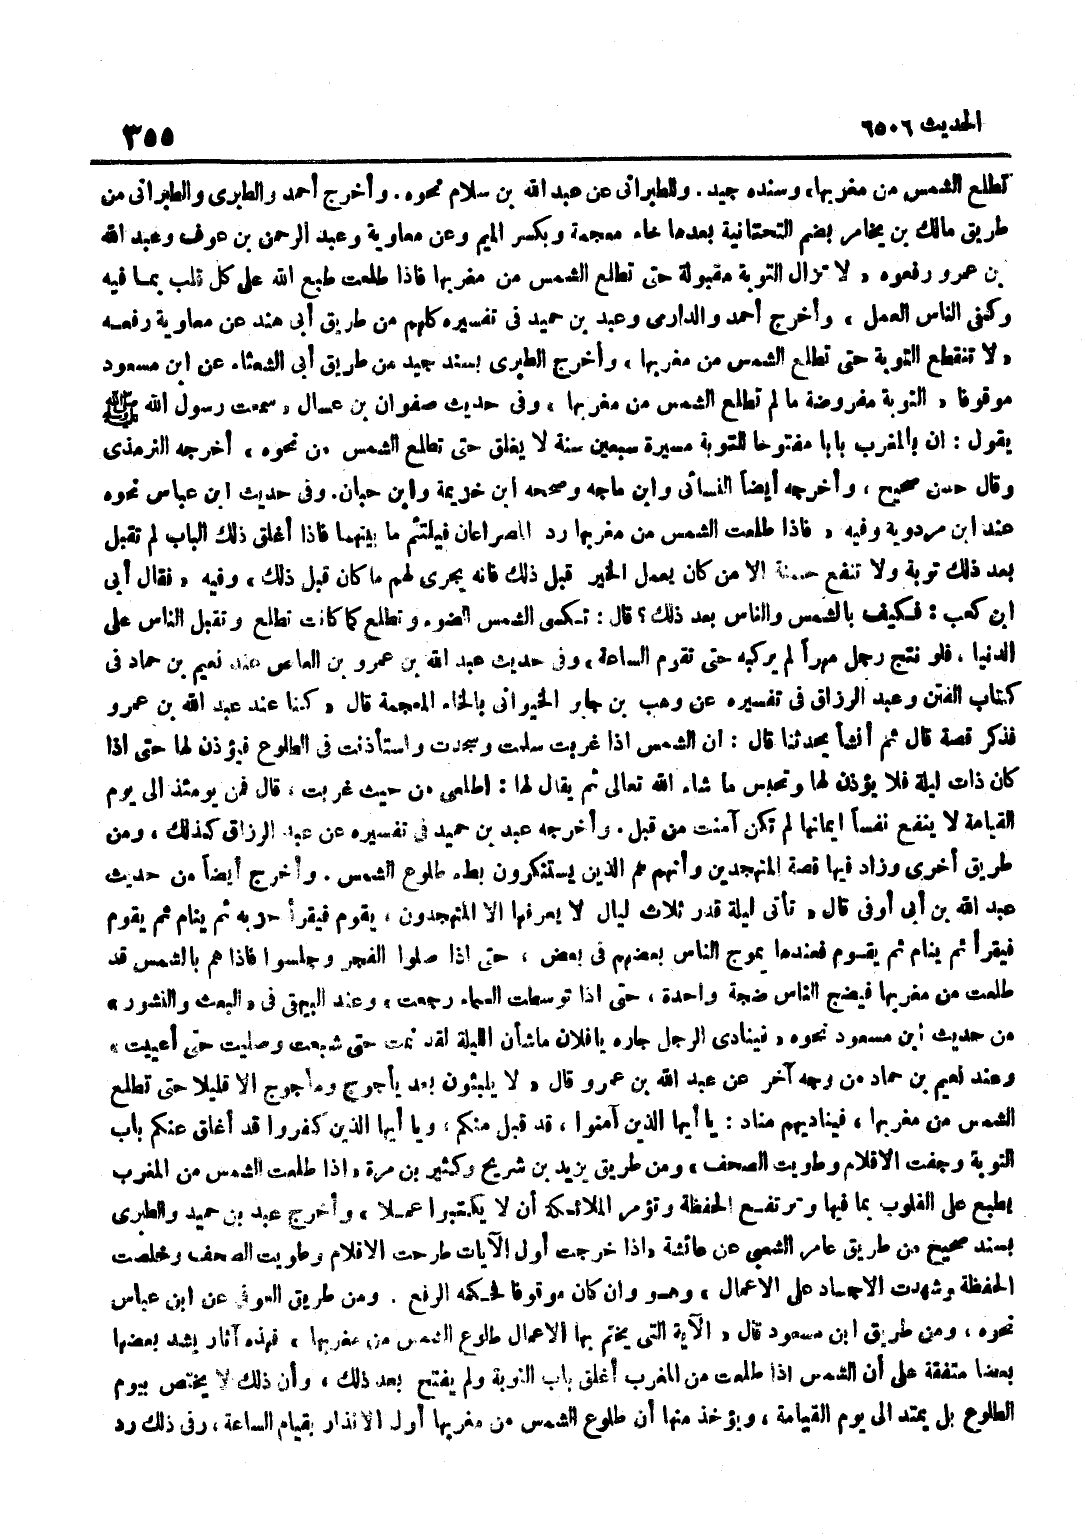 الحديث ٦٥٠٦
٣٥٥
تطلع الشمس من مغربها، وسنده جيد. والطبرانى عن عبد الله بن سلام نحوه. وأخرج أحمد والطبرى والطبرانى من
طريق مالك بن يخامر بضم التحتانية بعدها خاء معجمة وبكسر الميم وعن معاوية وعبد الرحمن بن عوف وعبد الله
بن عمرو رفعوه « لا تزال التوبة مقبولة حتى تطلع الشمس من مغربها فاذا طلعت طبع الله على كل قلب بما فيه
وكفى الناس العمل ، وأخرج أحمد والدارمى وعبد بن حميد فى تفسيره كلهم من طريق أبى هند عن معاوية رفعه
« لا تنقطع التوبة حتى تطلع الشمس من مغربها ، وأخرج الطبرى بسند جيد من طريق أبى الشعثاء عن ابن مسعود
موقوفا « التوبة مفروضة ما لم تطلع الشمس من مغربها ، وفى حديث صفوان بن عسال « سمعت رسول الله ﷺ
يقول : ان بالمغرب بابا مفتوحا للتوبة مسيرة سبعين سنة لا يغلق حتى تطلع الشمس من نحوه ، أخرجه الترمذى
وقال حسن صحيح ، وأخرجه أيضاً النسائى وابن ماجه وصححه ابن خزيمة وابن حبان. وفى حديث ابن عباس نحوه
عند ابن مردوية وفيه « فاذا طلعت الشمس من مغربها رد المصراعان فيلتئم ما بينهما فاذا أغلق ذلك الباب لم تقبل
بعد ذلك توبة ولا تنفع حسنة الا من كان يعمل الخير قبل ذلك فانه يجرى لهم ما كان قبل ذلك ، وفيه « فقال أبى
ابن كعب : فكيف بالشمس والناس بعد ذلك ؟ قال : تكسى الشمس الضوء وتطلع كما كانت تطلع وتقبل الناس على
الدنيا ، فلو نتج رجل مهراً لم يركبه حتى تقوم الساعة ، وفى حديث عبد الله بن عمرو بن العاص عند نعيم بن حماد فى
كتاب الفتن وعبد الرزاق فى تفسيره عن وهب بن جابر الخيوانى بالخاء المعجمة قال « كنا عند عبد الله بن عمرو
فذكر قصة قال ثم أنشأ يحدثنا قال : ان الشمس اذا غربت سلمت وسجدت واستأذنت فى الطلوع فيؤذن لها حتى اذا
كان ذات ليلة فلا يؤذن لها وتحبس ما شاء الله تعالى ثم يقال لها : اطلعى من حيث غربت ، قال فمن يومئذ الى يوم
القيامة لا ينفع نفساً ايمانها لم تكن آمنت من قبل. وأخرجه عبد بن حميد فى تفسيره عن عبد الرزاق كذلك ، ومن
طريق أخرى وزاد فيها قصة المتهجدين وأنهم هم الذين يستنكرون بطء طلوع الشمس . وأخرج أيضاً من حديث
عبد الله بن أبى أوفى قال « تأتى ليلة قدر ثلاث ليال لا يعرفها الا المتهجدون ، يقوم فيقرأ حزبه ثم ينام ثم يقوم
فيقرأ ثم ينام ثم يقوم فعندها يموج الناس بعضهم فى بعض ، حتى اذا صلوا الفجر وجلسوا فاذا هم بالشمس قد
طلعت من مغربها فيضج الناس ضجة واحدة ، حتى اذا توسطت السماء رجعت » وعند البيهقى فى « البعث والنشور »
من حديث ابن مسعود نحوه « فينادى الرجل جاره يافلان ماشأن الليلة لقد نمت حتى شبعت وصليت حتى أعييت »
وعند نعيم بن حماد من وجه آخر عن عبد الله بن عمرو قال « لا يلبثون بعد يأجوج ومأجوج الا قليلا حتى تطلع
الشمس من مغربها ، فيناديهم مناد : يا أيها الذين آمنوا ، قد قبل منكم ، ويا أيها الذين كفروا قد أغلق عنكم باب
التوبة وجفت الاقلام وطويت الصحف ، ومن طريق يزيد بن شريح وكثير بن مرة « اذا طلعت الشمس من المغرب
يطبع على القلوب بما فيها وترتفع الحفظة وتؤمر الملائكة أن لا يكتبوا عملا ، وأخرج عبد بن حميد والطبرى
بسند صحيح من طريق عامر الشعبى عن عائشة « اذا خرجت أول الآيات طرحت الاقلام وطويت الصحف وخلصت
الحفظة وشهدت الاجساد على الاعمال ، وهو وان كان موقوفا فحكمه الرفع . ومن طريق العوفى عن ابن عباس
نحوه ، ومن طريق ابن مسعود قال « الآية التى يختم بها الاعمال طلوع الشمس من مغربها ، فهذه آثار يشد بعضها
بعضا متفقة على أن الشمس اذا طلعت من المغرب أغلق باب التوبة ولم يفتح بعد ذلك ، وأن ذلك لا يختص بيوم
الطلوع بل يمتد الى يوم القيامة ، ويؤخذ منها أن طلوع الشمس من مغربها أول الانذار بقيام الساعة ، وفى ذلك رد